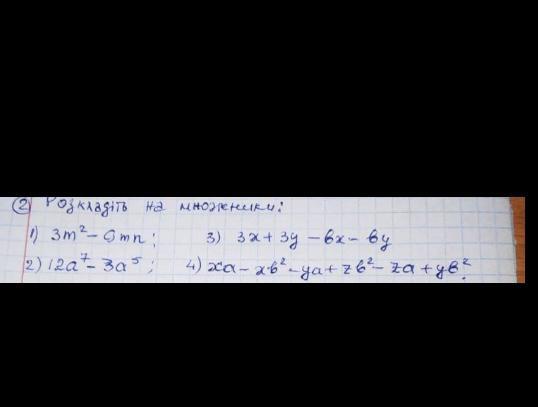 ② Розкладіть на множники:
1) 3m² - 6mn; 3) 3x + 3y - bx - by
2) 12a⁷ - 3a⁵; 4) xa - xb² - ya + zb² - za + yb².